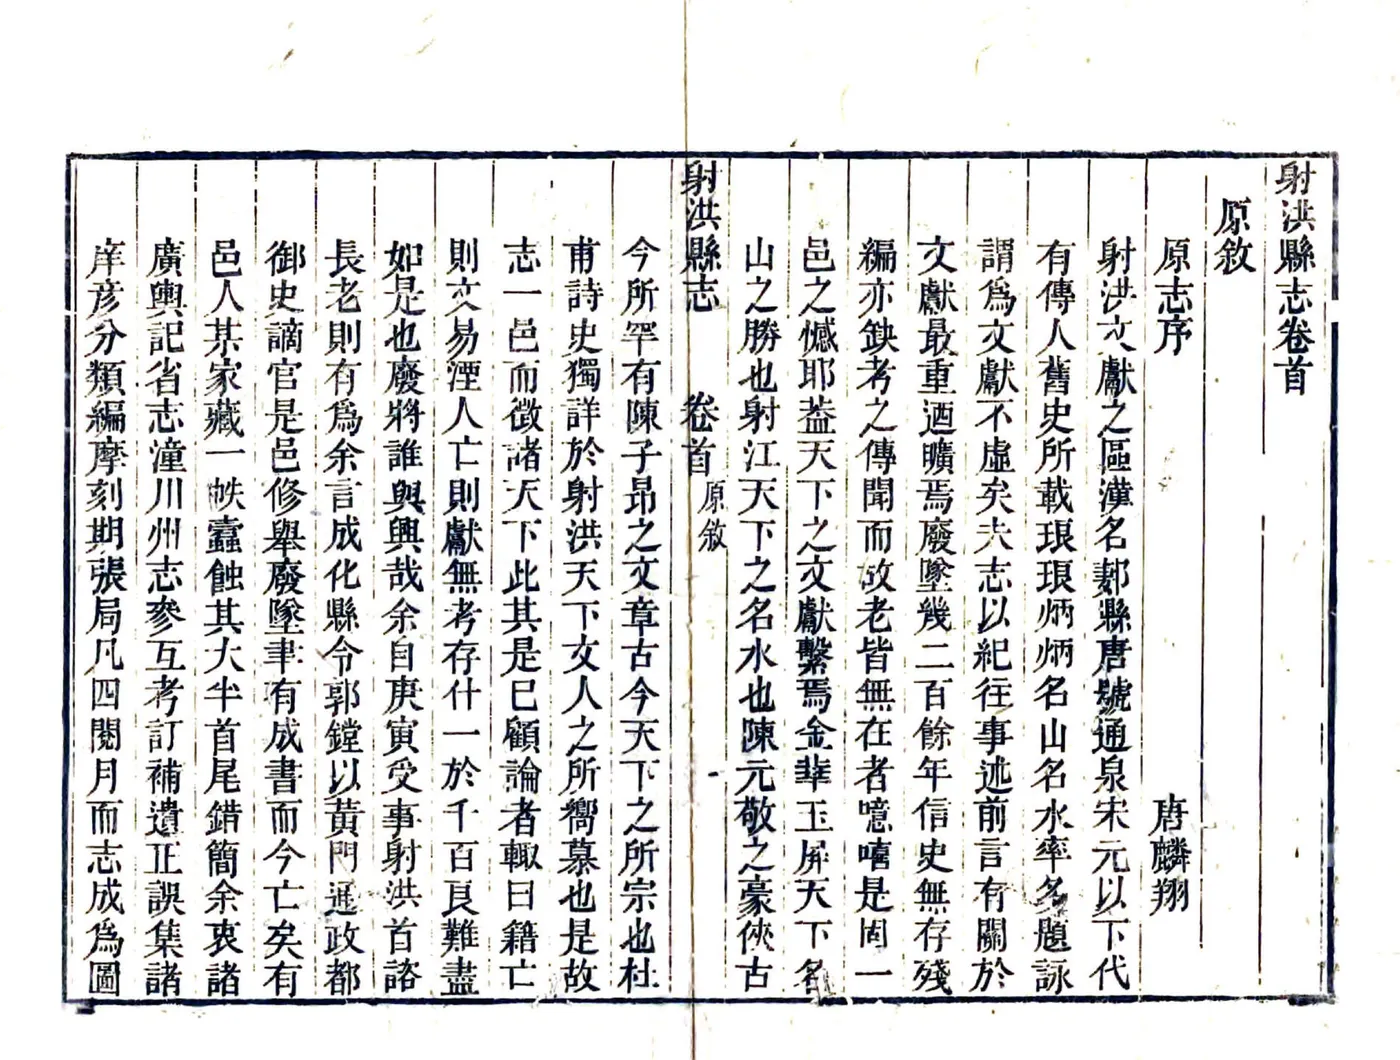 射洪縣志卷首
原敘
原志序 唐麟翔
射洪文獻之區漢名郪縣唐號通泉宋元以下代
有傳人舊史所載琅琅炳炳名山名水率多題詠
謂爲文獻不虛矣夫志以紀往事述前言有關於
文獻最重迺曠焉廢墜幾二百餘年信史無存殘
編亦缺考之傳聞而故老皆無在者噫嘻是固一
邑之憾耶葢天下之文獻繫焉金華玉屏天下名
山之勝也射江天下之名水也陳元敬之豪俠古
射洪縣志 卷首 原敘
今所罕有陳子昂之文章古今天下之所宗也杜
甫詩史獨詳於射洪天下文人之所嚮慕也是故
志一邑而徵諸天下此其是已顧論者輙曰籍亡
則文易湮人亡則獻無考存什一於千百良難盡
如是也廢將誰與興哉余自庚寅受事射洪首諮
長老則有爲余言成化縣令郭鏜以黃門遷政都
御史謫官是邑修舉廢墜聿有成書而今亡矣有
邑人某家藏一帙蠧蝕其大半首尾錯簡余裒諸
廣輿記省志潼川州志參互考訂補遺正誤集諸
庠彦分類編摩刻期張局凡四閱月而志成爲圖